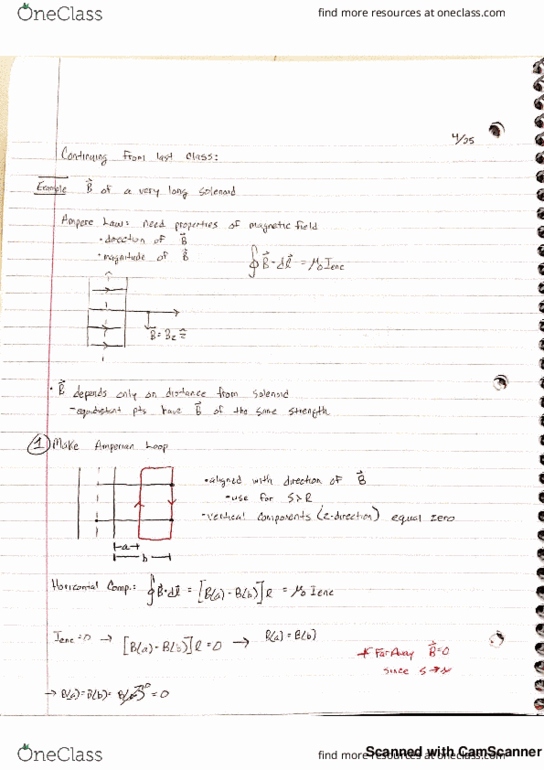 OneClass
find more resources at oneclass.com
4/25
Continuing from last class:
Example B of a very long solenoid
Ampere Law: need properties of magnetic field
• direction of B
• magnitude of B
∮B⃗·dl⃗ = μ₀Ienc
B = Bz ẑ
• B⃗ depends only on distance from solenoid
- equidistant pts have B⃗ of the same strength
① Make Amperian Loop
• aligned with direction of B⃗
• use for S>R
- vertical components (z-direction) equal zero
a
b
Horizontal Comp.: ∮B·dl = [B(a) - B(b)]l = μ₀ Ienc
Ienc = 0 → [B(a) - B(b)]l = 0 → B(a) = B(b)
* Far Away B⃗=0
since s→∞
→ B(a) = B(b) = B(∞) 0 = 0
OneClass
find more resources at oneclass.com
Scanned with CamScanner